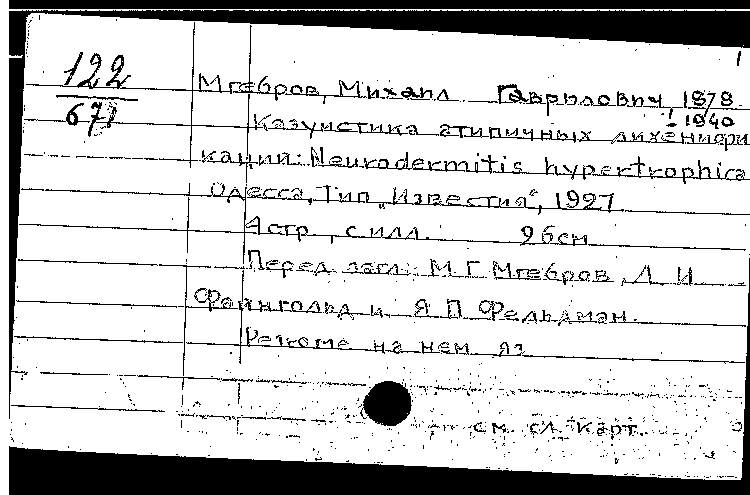 122
671
1
Мгебров, Михаил Гаврилович, 1878
- 1940
Казуистика атипичных лихенифи
каций: Neurodermitis hypertrophica
Одесса, Тип. "Известия", 1927
4 стр., с илл. 26 см
Перед загл.: М. Г. Мгебров, Л. И.
Файнгольд и Я. П. Фельдман.
Резюме на нем. яз
см. сл. карт.